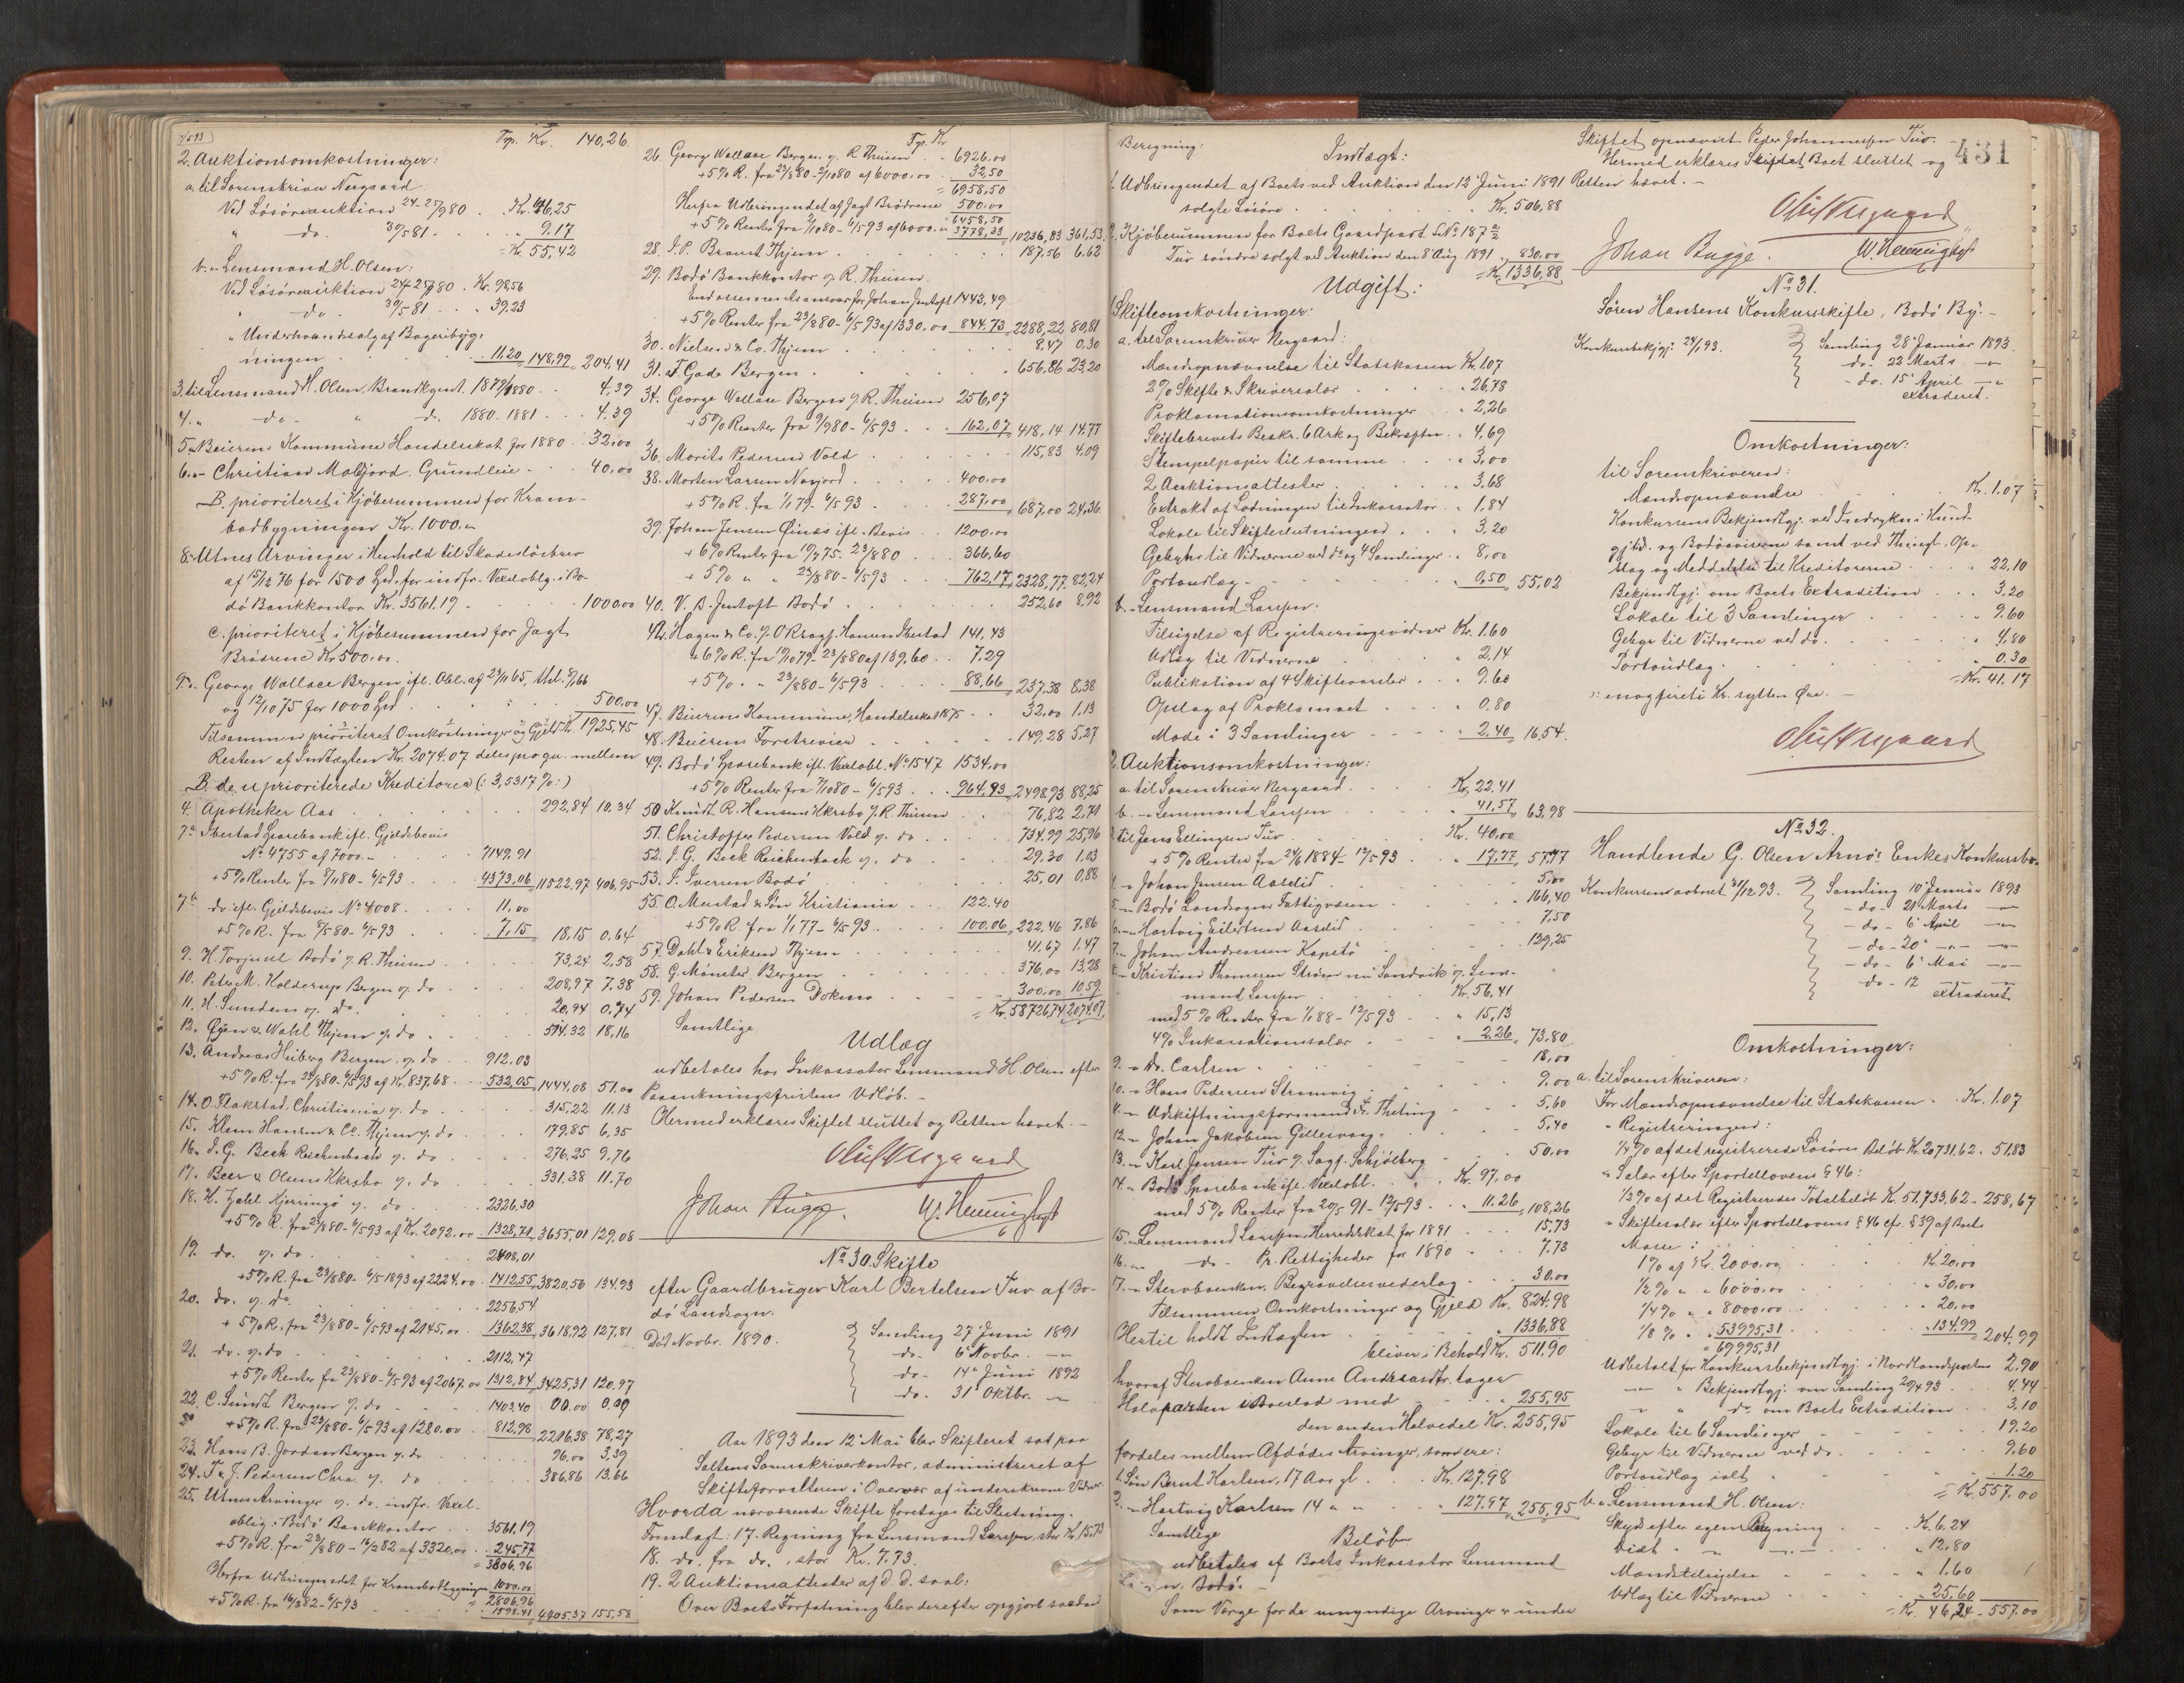 6/593
Trp. Kr. 140,26
2. Auktionsomkostninger:
a. til Sorenskriver Neergaard
Ved Lösöreauktion 24-25/980 . Kr. 46,25
" do. 30/581 . . " 9.17
= Kr. 55,42
b. " Lensmand H. Olsen:
Ved Lösöreauktion 24-25/980 . Kr. 98.56
" do. 30/581 . " 39.23
" Underhaandssalg af Bageribyg-
ningen . . . 11.20 148,99 204,41
3. til Lensmand H. Olsen, Brandkgent. 1879/1880 . . 4.39
4. " do. " do. 1880-1881 . . 4.39
5. " Beierens Kommune Handelsskat for 1880 . 32,00
6. " Christian Moldjord, Grundleie . . 40,00
B. prioriteret i Kjöbesummen for Kram-
bodbygningen Kr. 1000. "
8. Utnes Arvinger i Henhold til Skadeslösbrev
af 15/12 76 for 1500 Spd. for indfr. Vexeloblg. i Bo-
dö Bankkontor Kr. 3561.19 . . 1000.00
C. prioriteret i Kjöbesummen for Jagt
Brödrene Kr 500.00.
9a. George Wallace Bergen ifl. Obl. af 23/11 65, thl. 8/1 66
og 12/10 75 for 1000 Spd . . 500,00
Tilsammen prioriteret Omkostninger og Gjeld Kr. 1925,45
Resten af Indtægten Kr. 2074.07 deles pro qu. mellem
D. de uprioriterede Kreditorer (: 3,5317 %:)
4. Apotheker Aas . . . 292,84 10.34
7a Ibestad Sparebank ifl. Gjeldsbevis
No 4755 af 7000.- . . 7149.91
+5% Renter fra 8/1180 - 6/593 . . 4373,06 11522,97 406,95
7b do ifl. Gjeldsbevis No 4008 . . 11.00
+5% R. fra 9/580 - 6/593 . . 7,15 18,15 0.64
9. H. Torjusen Bodö v. R. Thiisen . . 73,24 2,58
10. Peter M. Kolderup Bergen v. do . . 208,97 7.38
11. H. Sundem v. do. . . 20,94 0,74
12. Öyen & Wahl Thjem v. do . . 514.32 18,16
13. Andreas Heiberg Bergen . v. do . . 912.03
+5% R. fra 23/880 - 6/593 af Kr. 837.68 . . 532,05 1444,08 51.00
14. O. Flakstad, Christiania v. do . . 315,22 11.13
15. Klem Hansen & Co. Thjem v. do . . 179,85 6,35
16. I. G. Beck Reichenbach v. do . . 276.25 9.76
17. Beer & Olsens Kkrsbo v. do . . 331.38 11.70
18. K. Zahl Kjerringö v. do . . 2326.30
+5% R. fra 23/880 - 6/593 af Kr. 2092.00 . . 1328,71 3655,01 129,08
19. do. v. do . . 2408,01
+5% R. fra 23/880 - 6/5 1893 af 2224.00 . . 1412,55 3820,56 134.93
20. do. v. do . . 2256,54
+5% R. fra 23/880 - 6/593 af 2145,00 . . 1362,38 3618,92 127,81
21. do. v. do . . 2112,47
+5% Renter fra 23/880 - 6/593 af 2067.00 1312,84 3425,31 120.97
22. C. Sundt Bergen v. do . . 1403,40 00.00 0,00
+5% R. fra 23/880 - 6/593 af 1280.00 . . 812,98 2216.38 78,27
23. Hans B. Jordan Bergen v. do . . 96.00 3,39
24. T. & J. Pedersen Chra. v. do . . 386,86 13,66
25. Utnes Arvinger v. do. indfr. Vexel-
oblig. i Bodö Bankkontor . . 3561,19
+5% R. fra 23/880 - 16/282 af 3320,00 . . 245,77
= 3806.96
Herfra Udbringendet for Krambodbygningen 1000.00
= 2806,96
+5% R. fra 16/282 - 6/593 . . 1598.41 4405,37 155,58
Trp. Kr
26. George Wallace Bergen v. R Thiisen . . 6926.00
+5% R. fra 23/880 - 2/1080 af 6000.00 . 32,50
= 6958,50
Herfra Udbringendet af Jagt Brödrene 500.00
6458,50
+5% Renter fra 2/1080 - 6/593 af 6000.00 3778,33 10236,83 361,53
28. I. P. Brandt Thjem . . 187,56 6,62
29. Bodö Bankkontor v. R. Thiisen.
Endossementsansvar for Johan Jentoft 1443,49
+5% Renter fra 23/880 - 6/593 af 1330.00 844,73 2288,22 80,81
30. Nielsen & Co. Thjem . . 8.47 0,30
31. F. Gade Bergen . . 656,86 23,20
34. George Wallace Bergen v. R. Thiisen 256,07
+5% Renter fra 9/980 - 6/593 . . 162,07 418,14 14.77
36. Morits Pedersen Vold . . 115,83 4.09
38. Morten Larsen Navjord . . 400.00
+5% R. fra 1/1 79 - 6/593 . . 287,00 687,00 24,36
39. Johan Jensen Öinæs ifl. Bevis . . 1200.00
+6% Renter fra 19/775 - 23/880 . . 366,60
+5% " " 23/880 - 6/593 . . 762,17 2328,77 82,24
40. V. B. Jentoft Bodö . . 252,60 8,92
42. Hagen & Co. v. O Kragf. Hansen Ibestad 141,43
+6% R. fra 1/1079 - 23/880 af 139,60 . . 7.29
+5% " " 23/880 - 6/593 . . 88,66 237,38 8,38
47. Beierens Kommune, Handelsskat 1875 . . 32.00 1,13
48. Beierens Forstrevier . . 149.28 5,27
49. Bodö Sparebank ifl. Vexelobl. No 1547 1534,00
+5% Renter fra 7/1080 - 6/593 . . 964,93 2498,93 88,25
50 Knudt R. Hansens Kkrsbo v. R. Thiisen . . 76,82 2,71
51. Christoffer Pedersen Vold v. do . . 734.99 25,96
52. I. G. Beck Reichenback v. do . . 29,30 1.03
53. I. Iversen Bodö . . 25,01 0,88
55 O. Mustad & Sön Kristiania . . 122.40
+5% R. fra 1/1 77 - 6/593 . . 100,06 222,46 7,86
57. Dahl & Eriksen Thjem . . 41,67 1.47
58. G. Mönster Bergen . . 376,00 13,28
59. Johan Pedersen Dokmo . . 300,00 10.59
= Kr. 58726,74 2074.07
Samtlige
Udlæg
udbetales hos Inkassator Lensmand H. Olsen efter
Paaankningsfristens Udlöb. -
Hermed erklæres Skiftet sluttet og Retten hævet. -
Johan Bugge. W. Henningsen
No 30. Skifte
efter Gaardbruger Karl Bertelsen Tuv af Bo-
dö Landsogn.
Död Novbr. 1890.
Samling 27' Juni 1891
do. 6' Novbr. - "
do. 14' Juni 1892
do. 31' Oktbr. "
Aar 1893 den 12' Mai blev Skifteret sat paa
Saltens Sorenskriverkontor, administreret af
Skifteforvalteren i Overvær af underskrevne Vidner
Hvorda nærværende Skifte foretoges til Slutning.
Fremlagt: 17. Regning fra Lensmand Larssen, stor Kr 15.73
18. do. fra do., stor Kr. 7.73.
19. 2 Auktionsattester af D. D. saal:
Over Boets Forfatning blev derefter opgjort saadan
Beregning:
Indtægt:
1. Udbringendet af Boets ved Auktion den 12' Juni 1891
solgte Lösöre . . . Kr. 506,88
2. Kjöbesummen for Boets Gaardpart L. No 187 a/2
Tuv söndre solgt ved Auktion den 8' Aug 1891 . " 830.00
= Kr. 1336,88
Udgift:
1. Skifteomkostninger:
a. til Sorenskriver Nergaard:
Mændropnævnelse til Statskassen Kr. 1.07
2% Skifte & Skriversalær . . " 26,78
Proklamationsomkostninger . . " 2,26
Skiftebrevets Beskr. 6 Ark og Bekræftn. . " 4,69
Stempelpapir til samme . . " 3,00
2 Auktionsattester . . " 3,68
Extrakt af Lodningen til Inkassator . " 1,84
Lokale til Skifteslutningen . . " 3,20
Gebyhr til Vidnerne ved do og 4 Samlinger . " 8,00
Portoudlæg . . " 0,50 55,02
b. " Lensmand Larssen:
Tilsigelse af Registreringsvidner Kr. 1.60
Udlæg til Vidnerne . . " 2,14
Publikation af 4 Skiftevarsler . . " 9.60
Opslag af Proklamaet . . " 0.80
Möde i 3 Samlinger . . " 2.40 16,54
2. Auktionsomkostninger:
a. til Sorenskriver Nergaard . . Kr. 22.41
b. " Lensmand Larssen . . " 41,57 63,98
3. til Jens Ellingsen Tuv . . Kr. 40,00
+5% Renter fra 24/6 1884 - 12/593 . . " 17,77 57,77
4. " Johan Jensen Aaselid . . 5,00
5. " Bodö Landsogns Fattigvæsen . . 166,40
6. " Hartvig Eilertsen Aaselid . . 7,50
7. " Johan Andreassen Kapstö . . 129,25
8. " Kristian Thomesen Ström nu Sandvik v. Lens-
mand Larssen . . Kr. 56,41
med 5% Renter fra 1/1 88 - 12/593 . . " 15,13
4% Inkassationssalær . . " 2,26 73,80
9. " Dr. Carlsen . . 18,00
10. " Hans Pedersen Strømvig . . 9.00
11. " Udskiftningsformand Fr. Theting . . 5,60
12. " Johan Jakobsen Gillesvaag . . 5,40
13. " Karl Jensen Tuv v. Sagf. Schjölberg . . 50,00
14. " Bodö Sparebank ifl. Vexelobl. . . Kr. 97,00
med 5% Renter fra 20/1 91 - 12/593 . . " 11.26 108,26
15. " Lensmand Larssen Herredsskat for 1891 . . 15,73
16. " do. Pr. Rettigheder for 1890 . . 7.73
17. " Stervboenken, Begravelsesvederlag . . 30,00
Tilsammen Omkostninger og Gjeld Kr. 824,98
Hertil holdt Indtægten . . 1336,88
bliver i Behold Kr. 511.90
hvoraf Stervboenken Anne Andreasdtr. tager
Halvparten i Boeslod med . . " 255,95
den anden Halvedel Kr. 255,95
fordeles mellem Afdödes Arvinger, som ere:
1. Sön Bernt Karlsen, 17 Aar gl. . . Kr. 127,98
2. " Hartvig Karlsen 14 " " . . " 127,97 255,95
Samtlige
Belöb
udbetales af Boets Inkassator Lensmand
Bodö. -
Som Værge for de umyndige Arvinger er under
Skiftet opnævnt Peder Johannessen Tuv.
Hermed erklæres Skiftet Boet sluttet og
Retten hævet. -
431
Johan Bugge. W. Henningsen
No 31.
Sören Hansens Konkursskifte, Bodö By. -
Konkursbekjgj. 24/1 93.
Samling 28' Januar 1893.
do. 22' Marts "
do. 15' April "
extraderet.
Omkostninger:
til Sorenskriveren:
Mændropnævndse . . Kr. 1.07
Konkursens Bekjendtgj. ved Indrykn. i Kund-
gj.tid. og Bodöaviserne samt ved Thingl. Op-
slag og Meddelelse til Kreditorerne . . " 22.10
Bekjendtgj. om Boets Extradition . . " 3,20
Lokale til 3 Samlinger . . " 9.60
Gebyr til Vidnerne ved do. . . " 4.80
Portoudlæg . . " 0.30
= Kr. 41,17
): enogfirti Kr. sytten Öre. -
No 32.
Handlende G. Olsen Arnös Enkes Konkursbo.
Konkursen aabnet 31/12 93.
Samling 10' Januar 1893
do. 21' Marts "
do. 6' April "
do. 20' " "
do. 6' Mai "
do. 12 "
extraderet.
Omkostninger:
a. til Sorenskriveren:
For Mændropnævndse til Statskassen . . Kr. 1.07
" Registreringen:
1/4% af det registrerede Lösöres Belöb Kr. 20731,62 . 51,83
" Salær efter Sportellovens § 46:
1/2% af det Registreredes Totalbelöb Kr. 51,733,62 - 258,67
" Skiftesalær efter Sportellovens § 46 cfr. § 39 af Boets
Masse:
1% af Kr. 2000.00 . . Kr. 20,00
1/2% " " 6000.00 . . " 30,00
1/4% " " 8000.00 . . " 20,00
1/8% " " 53995,31 . . " 134,99 204,99
= 69995,31
Udbetalt for Konkursbekjendtgj. i Nordlandsposten 2,90
" " Bekjendtgj. om Samling 20/4 93 . . 4,44
" " do om Boets Extradition . . 3,10
Lokale til 6 Samlinger . . 19,20
Gebyr til Vidnerne ved do . . 9,60
Portoudlæg ialt . . 1.20
= Kr. 557.00
b. " Lensmand H. Olsen:
Skyds efter egen Regning . . Kr. 6.24
Diæt . . " 12,80
Mændstilsigelse . . " 1.60
Udlæg til Vidnerne . . " 25,60
= Kr. 46,24 - 557.00